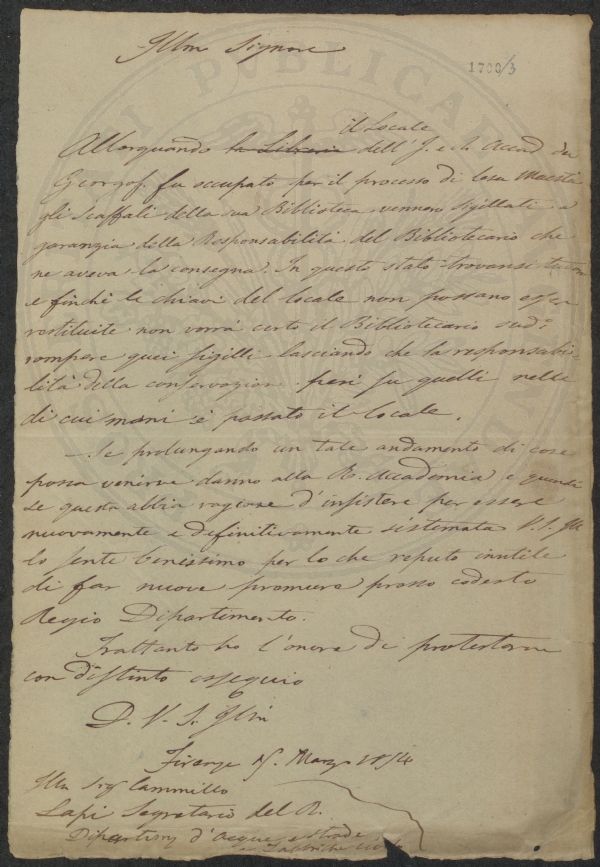 Illmo Signore
1700/3
il Locale
Allorquando la Libreria dell' I. e R. Accad dei
Georgof. fu occupato per il processo di lesa Maestà
gli Scaffali della sua Biblioteca vennero Sigillati a
garanzia della Responsabilità del Bibliotecario che
ne aveva la consegna. In questo stato trovansi tuttora
e finchè le chiavi del locale non possano esser
restituite non vorrà certo il Bibliotecario sudo
rompere quei sigilli lasciando che la responsabi-
lità della conservazione pesi su quelli nelle
di cui mani è passato il locale.
Se prolungando un tale andamento di cose
possa venirne danno alla R. Accademia e quindi
se questa abbia ragione d'insistere per essere
nuovamente e definitivamente sistemata V. S. Illma
lo sente benissimo per lo che reputo inutile
di far nuove premure presso codesto
Regio Dipartimento.
Frattanto ho l'onore di protestarmi
con distinto ossequio
D. V. S. Illma
Firenze Marzo 1854
Illmo Sigr Cammillo
Lapi Segretario del R.
Dipartim d'Acque e Strade
e Fabbriche Civili